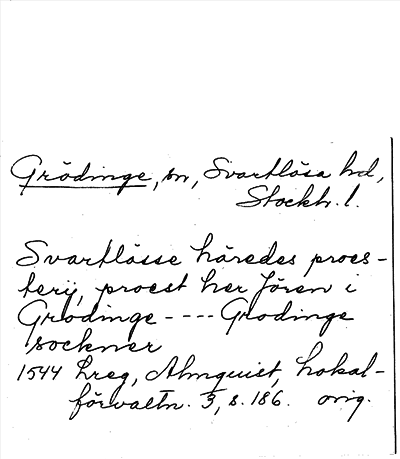 Grödinge, sn, Svartlösa hd,
Stockh. l.
Svartlösse häredes proes-
terij, proest her Jören i
Grodinge ---- Grodinge
sockner
1544 Lreg, Almquist, Lokal-
förvaltn. 3, s. 186. orig.